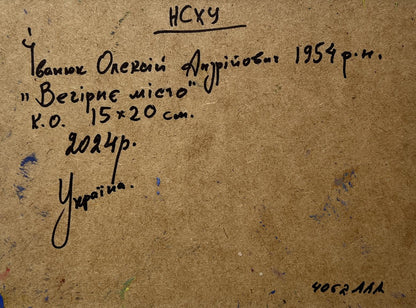 НСХУ
Іванюк Олексій Андрійович 1954 р.н.
"Вечірнє місто"
К.О. 15×20 см.
2024р.
Україна.